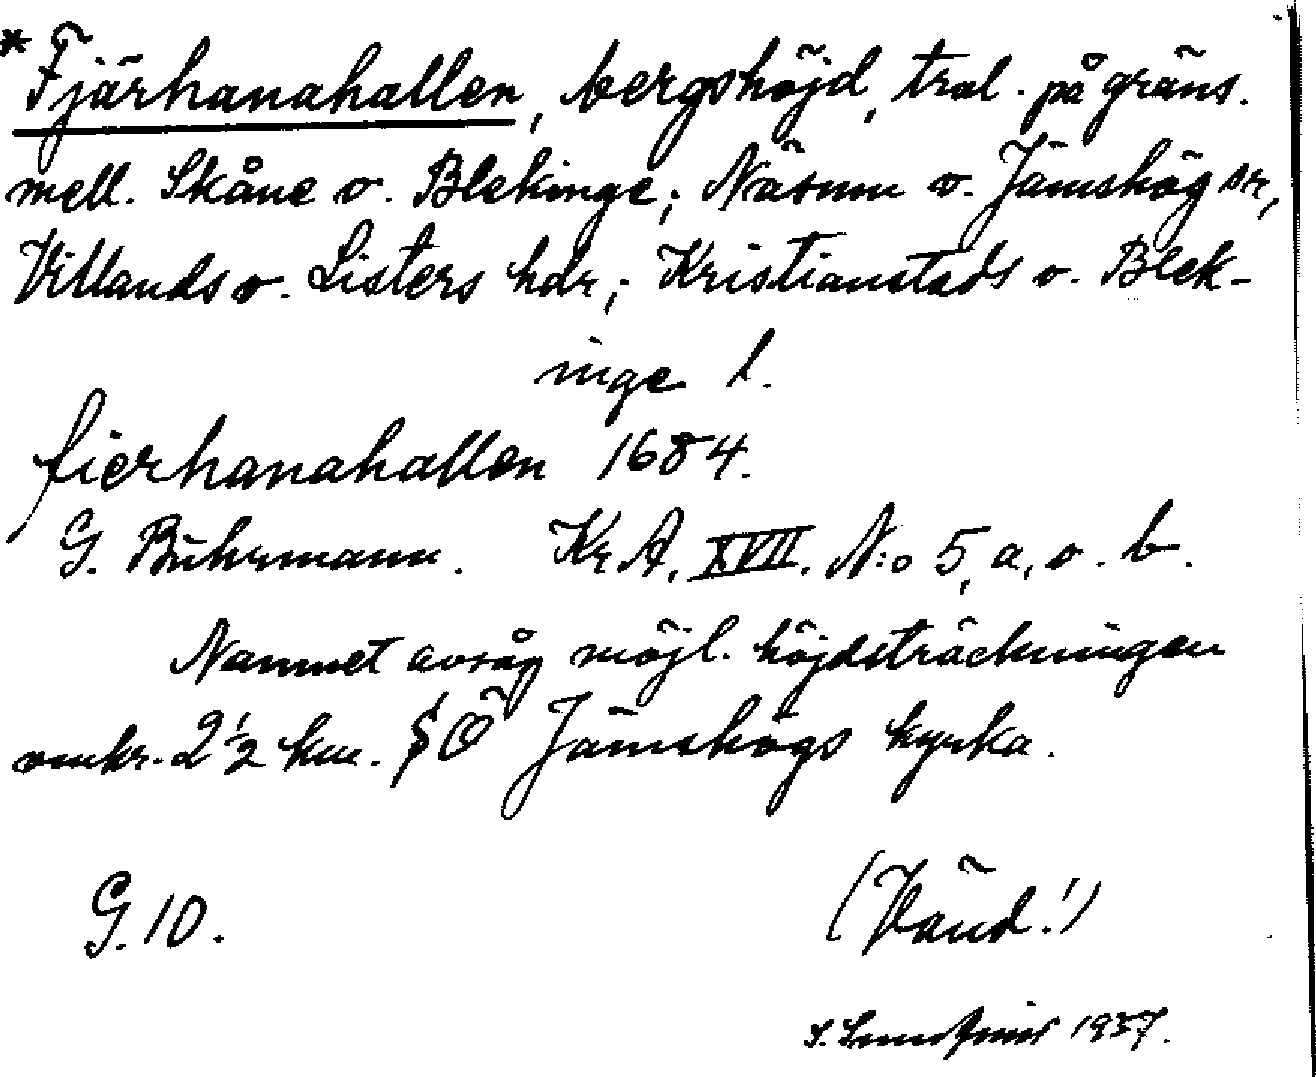 *Fjärhanahallen, bergshöjd, trol. på gräns.
mell. Skåne o. Blekinge; Näsum o. Jämshög snr,
Villands o. Listers hdr; Kristianstads o. Blek-
inge l.
fierhanahallen 1684.
G. Buhrmann. Kr. A. XVII. N:o 5, a, o. b.
Namnet avsåg möjl. höjdsträckningen
omkr. 2 ½ km. SÖ Jämshögs kyrka.
G. 10. (Vänd!)
1937.